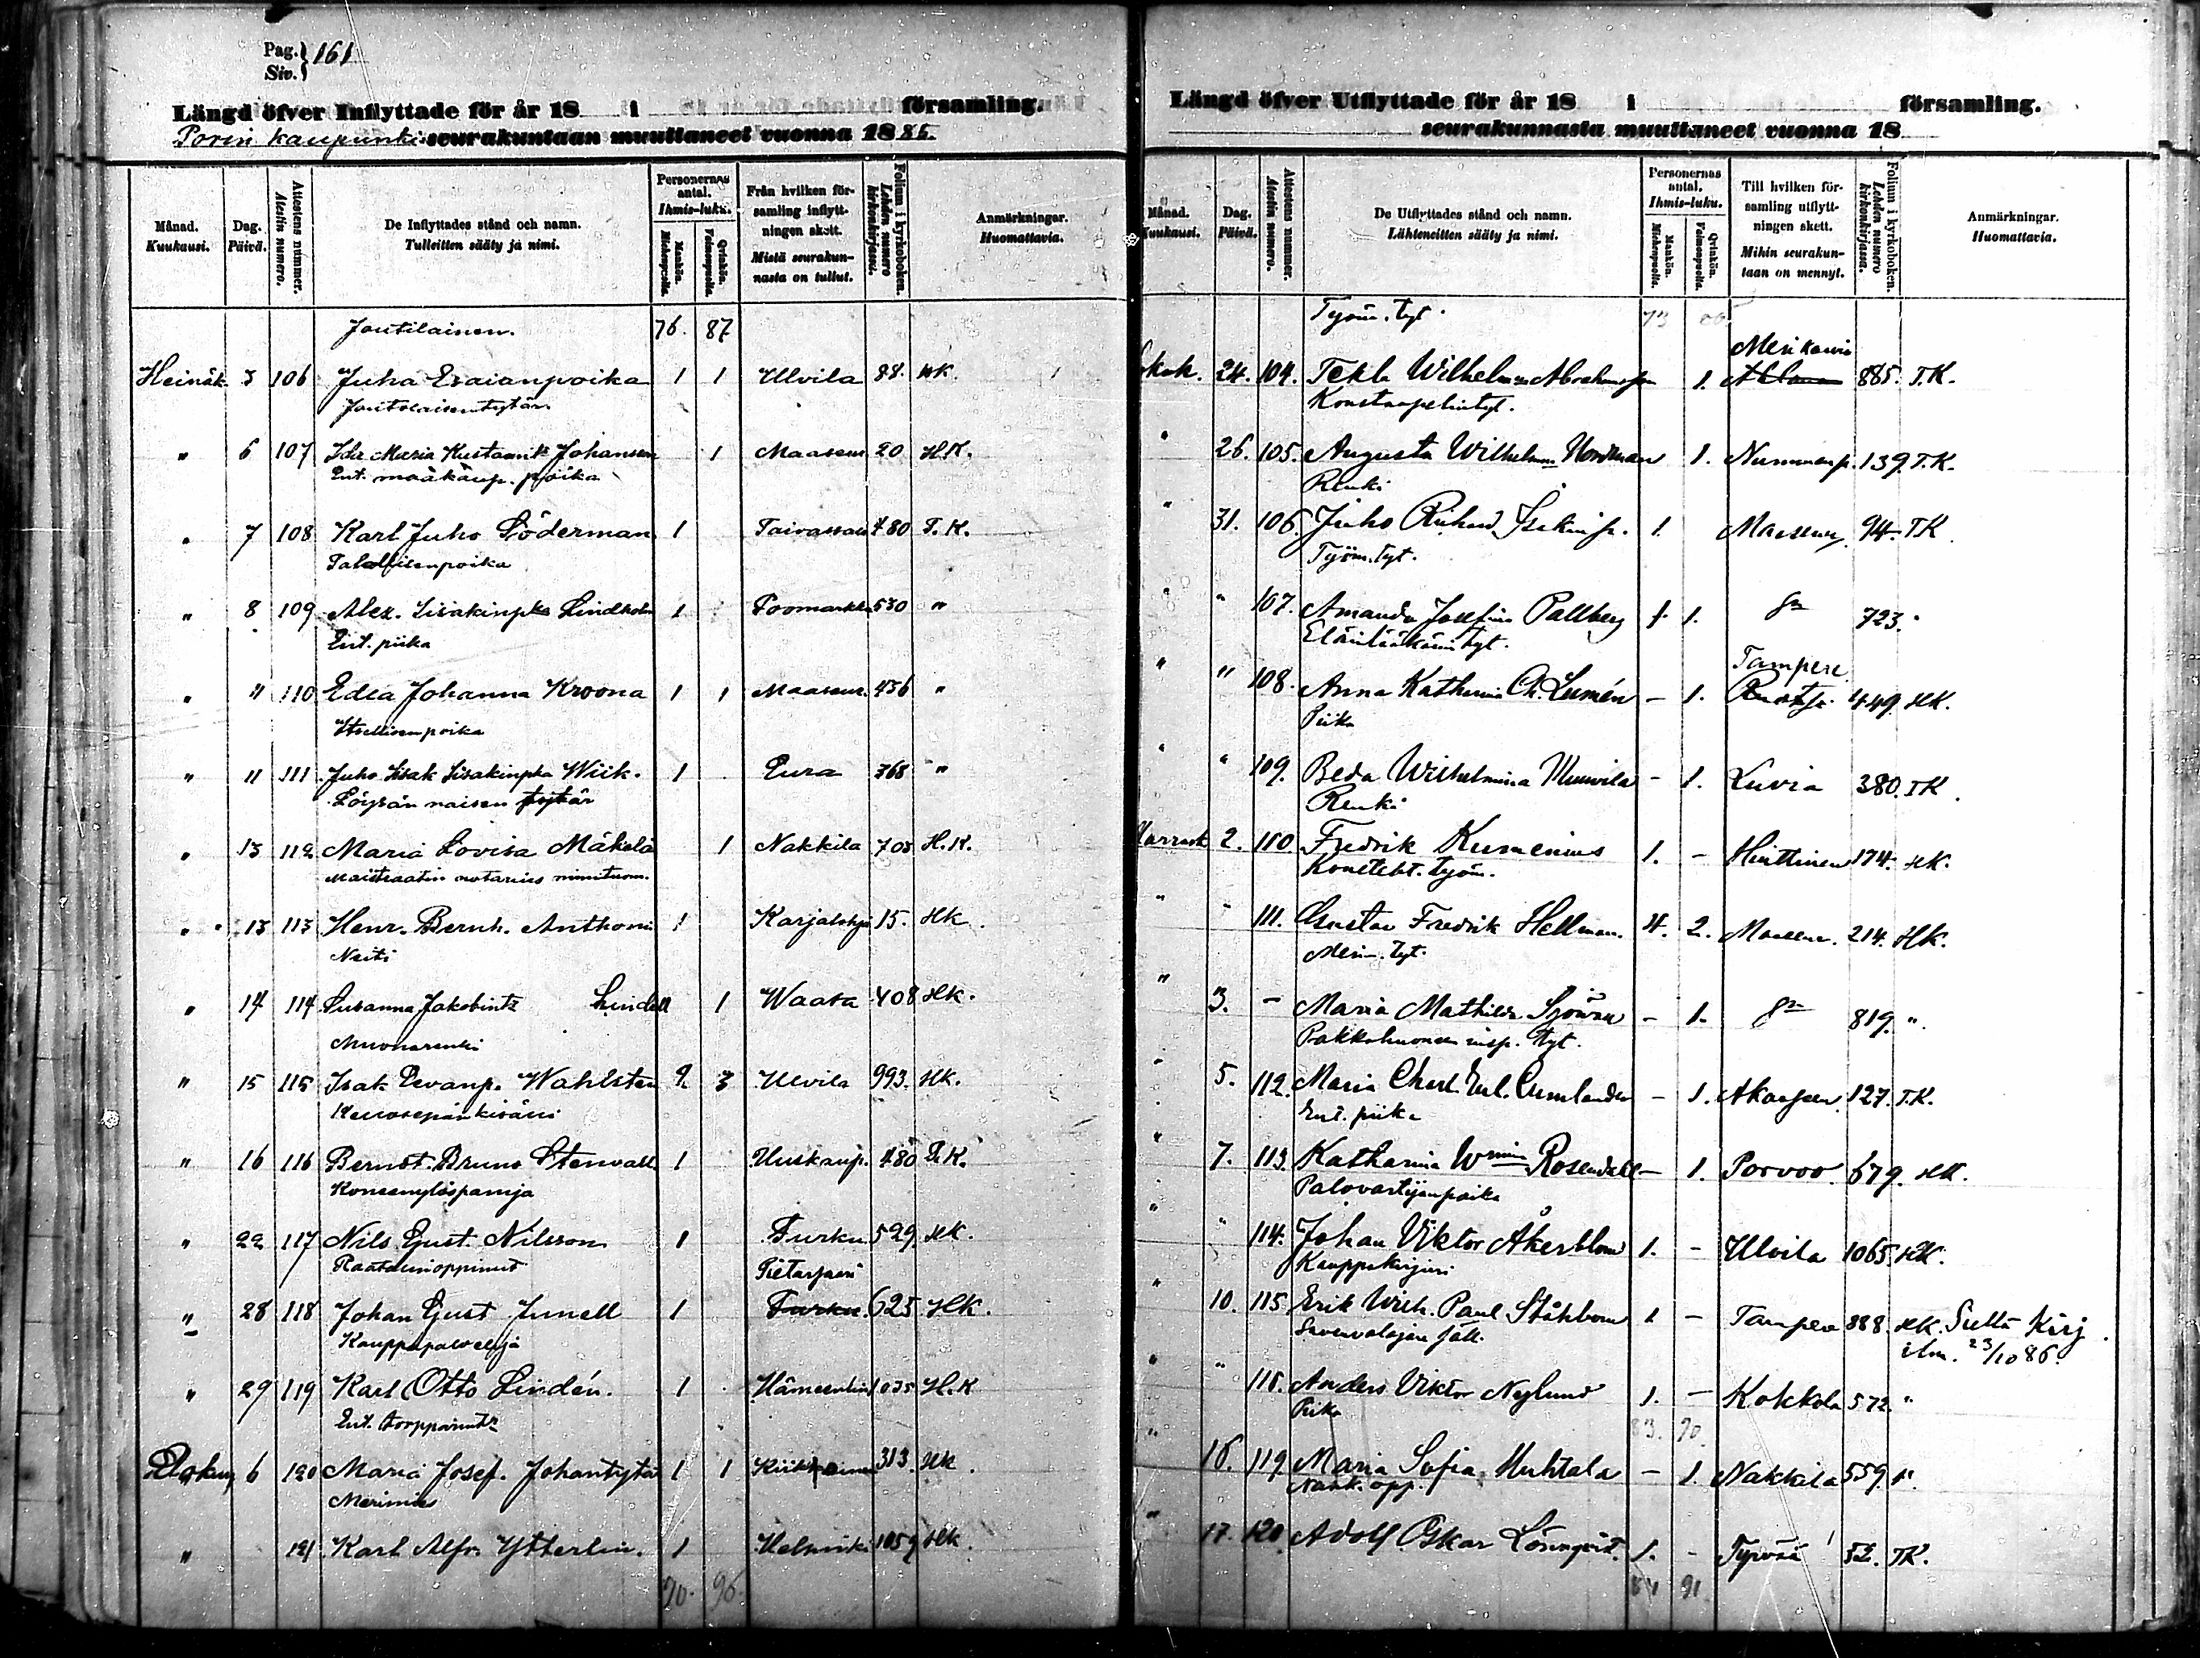 Pag. } 161
Siv. }
Längd öfver Inflyttade för år 18 i församling.
Porin kaupunki seurakuntaan muuttaneet vuonna 1886.
Månad. Kuukausi. Dag. Päivä. Attestens nummer. Atestin numero. De Inflyttades stånd och namn. Tulleitten sääty ja nimi. Personernas antal. Ihmis-luku. Mankön. Miehenpuolia. Qvinkön. Vaimonpuolia. Från hvilken församling inflyttningen skett. Mistä seurakunnasta on tullut. Folium i kyrkoboken. Lehden numero kirkonkirjassa. Anmärkningar. Huomattavia.
Joutilainen. 76. 87
Heinäk. 3 106 Juha Esaianpoika 1 1 Ulvila 88. HK.
" 6 107 Ida Maria Kustaantr Johansson 1 Maaseur. 20 H.K.
Ent. maakaup. poika
" 7 108 Karl Juho Söderman 1 Taivassalo 480 T.K.
Talollisenpoika
" 8 109 Alex. Iisakinpka Lindholm 1 Poomarkku 530 "
Ent. piika
" " 110 Edla Johanna Kroona 1 1 Maaseur. 436 "
Itsellisenpoika
" 11 111 Juho Isak Iisakinpka Wiik. 1 Eura 768 "
Löysän naisen tytär
" 13 112 Maria Lovisa Mäkelä 1 Nakkila 708 H.K.
Maistraatin notarius nimituom.
" 13 113 Henr. Bernh. Anthoni 1 Karjalohja 15. HK.
Neiti
" 14 114 Susanna Jakobintr Lindell 1 Waasa 408 HK.
Muonarenki
" 15 115 Isak Evanp. Wahlsten 2 3 Ulvila 993. HK.
" 16 116 Berndt Bruno Stenvall 1 Uuskaup. 480 HK.
" 22 117 Nils Gust. Nilsson 1 Turku 529. HK.
Raatalinoppinut Pietarsaari
" 28 118 Johan Gust Junell 1 Turku. 625 HK.
Kauppapalvelija
" 29 119 Karl Otto Lindén. 1 Hämeenlin 1035 H.K
Ent. torpparintr
Elokuu 6 120 Maria Josef. Johantytär 1 1 313. HK.
Merimies
" 121 Karl Alfr. Ytterlin. 1 Helsinki 1059 HK.
90. 96.
Längd öfver Utflyttade för år 18 i församling.
seurakunnasta muuttaneet vuonna 18
Månad. Kuukausi. Dag. Päivä. Attestens nummer. Atestin numero. De Utflyttades stånd och namn. Lähteneitten sääty ja nimi. Personernas antal. Ihmis-luku. Mankön. Miehenpuolia. Qvinkön. Vaimonpuolia. Till hvilken församling utflyttningen skett. Mihin seurakuntaan on mennyt. Folium i kyrkoboken. Lehden numero kirkonkirjassa. Anmärkningar. Huomattavia.
Työm. tyt. 73
Merikarvi
Lokak. 24. 104. Tekla Wilhelmina 1. 885. T.K.
Konstaapelintyt.
" 26. 105. Augusta Wilhelmina Nordman 1. Nummenp. 139. T.K.
Renki
" 31. 106. Juho Rikhard Isakinp. 1. Maaseur. 94. TK.
Työm. tyt.
" " 107. Amanda Josefina Pallberg 1. 1. 723. "
Eläinlääkärin tyt. Tampere
" " 108. Anna Katharina Ch. Lumén - 1. 449. HK.
Piika
" " 109. Beda Wilhelmina Munvila - 1. Luvia 380. TK.
Renki
Marrask. 2. 110. Fredrik Kumenius 1. - Hinttinen 174. HK.
Konstebt. työm.
" " 111. Gustav Fredrik Hellman. 4. 2. Maaseur. 214. HK.
Merim. tyt.
" 3. - Maria Mathilda Sjöman - 1. 819. "
Pakkahuoneen insp. tyt.
" 5. 112. Maria Charl. - 1. 127. T.K.
Ent. piika
" 7. 113. Katharina Wmina Rosendahl - 1. Porvoo. 679. HK.
Palovartijanpoika
" " 114. Johan Viktor Åkerblom 1. - Ulvila 1065. HK.
Kauppakirjuri
" 10. 115. Erik Wilh. Paul Ståhlbom 1 - Tampere 888. HK. Sieltä Kirj
ilm. 23/10 86.
" " 118. Anders Viktor Nylund 1. - Kokkola 572. "
Piika 83. 90.
" 16. 119. Maria Sofia Huhtala - 1. Nakkila 559. "
Nahk. opp.
" 17. 120. Adolf Oskar Lönnqvist. 1. - Tyrvää 52. TK.
84 91